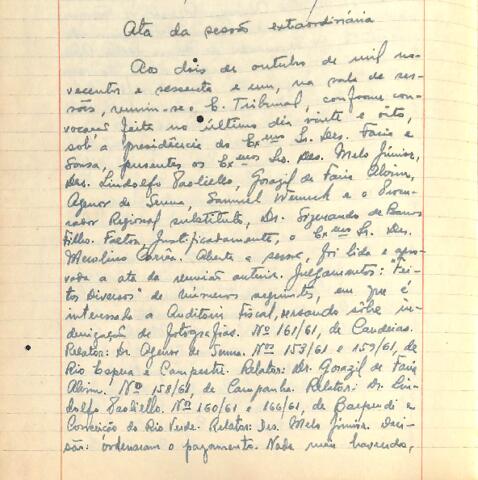 Ata da sessão extraordinária
Aos dois de outubro de mil no-
vecentos e sessenta e um, na sala de ses-
sões, reuniu-se o E. Tribunal, conforme con-
vocação feita no último dia vinte e oito,
sob a presidência do Exmo Sr. Des. Faria e
Sousa, presentes os Exmos Srs. Des. Melo Júnior,
Drs. Lindolfo Paoliello, Gorazil de Faria Alvim,
Agenor de Senna, Samuel Werneck e o Procu-
rador Regional substituto, Dr. Sizenando de Barros
Filho. Faltou, justificadamente, o Exmo Sr. Des.
Merolino Corrêa. Aberta a sessão, foi lida e apro-
vada a ata da reunião anterior. Julgamentos: "Fei-
tos Diversos" de números seguintes, em que é
interessada a Auditoria Fiscal, versando sôbre in-
denização de fotografias. Nº 161/61, de Candeias.
Relator: Dr. Agenor de Senna. Nos 153/61 e 159/61, de
Rio Espera e Campestre. Relator: Dr. Gorazil de Faria
Alvim. Nº 158/61, de Campanha. Relator: Dr. Lin-
dolfo Paoliello. Nos 160/61 e 166/61, de Baependi e
Conceição do Rio Verde. Relator: Des. Melo Júnior. Deci-
são: ordenaram o pagamento. Nada mais havendo,